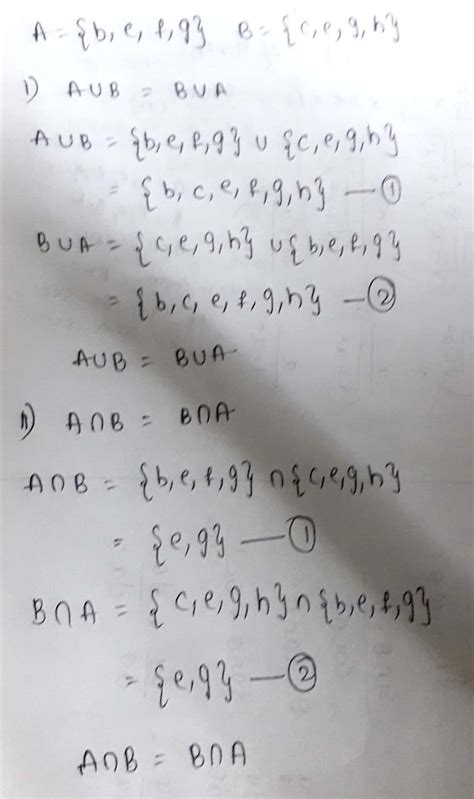 A = {b, e, f, g} B = {c, e, g, h}
i) A∪B = B∪A
A∪B = {b, e, f, g} ∪ {c, e, g, h}
= {b, c, e, f, g, h} — ①
B∪A = {c, e, g, h} ∪ {b, e, f, g}
= {b, c, e, f, g, h} — ②
A∪B = B∪A
ii) A∩B = B∩A
A∩B = {b, e, f, g} ∩ {c, e, g, h}
= {e, g} — ①
B∩A = {c, e, g, h} ∩ {b, e, f, g}
= {e, g} — ②
A∩B = B∩A